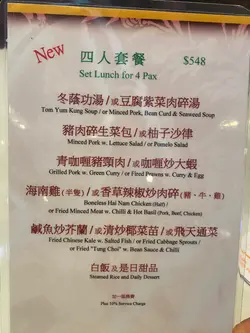 New
四人套餐 $548
Set Lunch for 4 Pax
冬蔭功湯/或豆腐紫菜肉碎湯
Tom Yum Kung Soup / or Minced Pork, Bean Curd & Seaweed Soup
豬肉碎生菜包/或柚子沙律
Minced Pork w. Lettuce Salad / or Pomelo Salad
青咖喱豬頸肉/或咖喱炒大蝦
Grilled Pork w. Green Curry / or Fried Prawns w. Curry & Egg
海南雞(半隻)/或香草辣椒炒肉碎(豬、牛、雞)
Boneless Hai Nam Chicken (Half) /
or Fried Minced Meat w. Chilli & Hot Basil (Pork, Beef, Chicken)
鹹魚炒芥蘭/或清炒椰菜苗/或飛天通菜
Fried Chinese Kale w. Salted Fish / or Fried Cabbage Sprouts /
or Fried "Tung Choi" w. Bean Sauce & Chilli
白飯及是日甜品
Steamed Rice and Daily Dessert
加一服務費
Plus 10% Service Charge